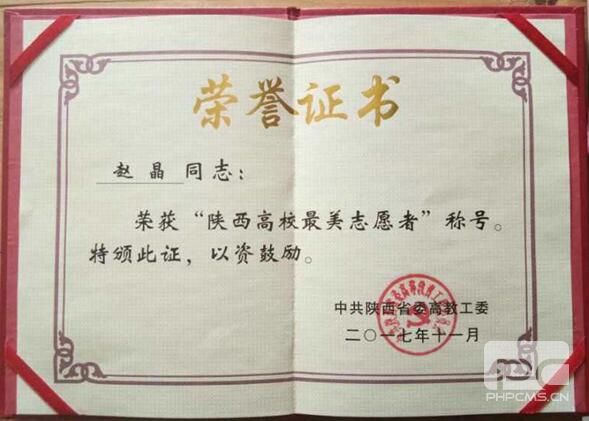 荣誉证书
赵晶 同志：
荣获“陕西高校最美志愿者”称号。
特颁此证，以资鼓励。
中共陕西省委高教工委
二〇一七年十一月
PHPCMS.CN